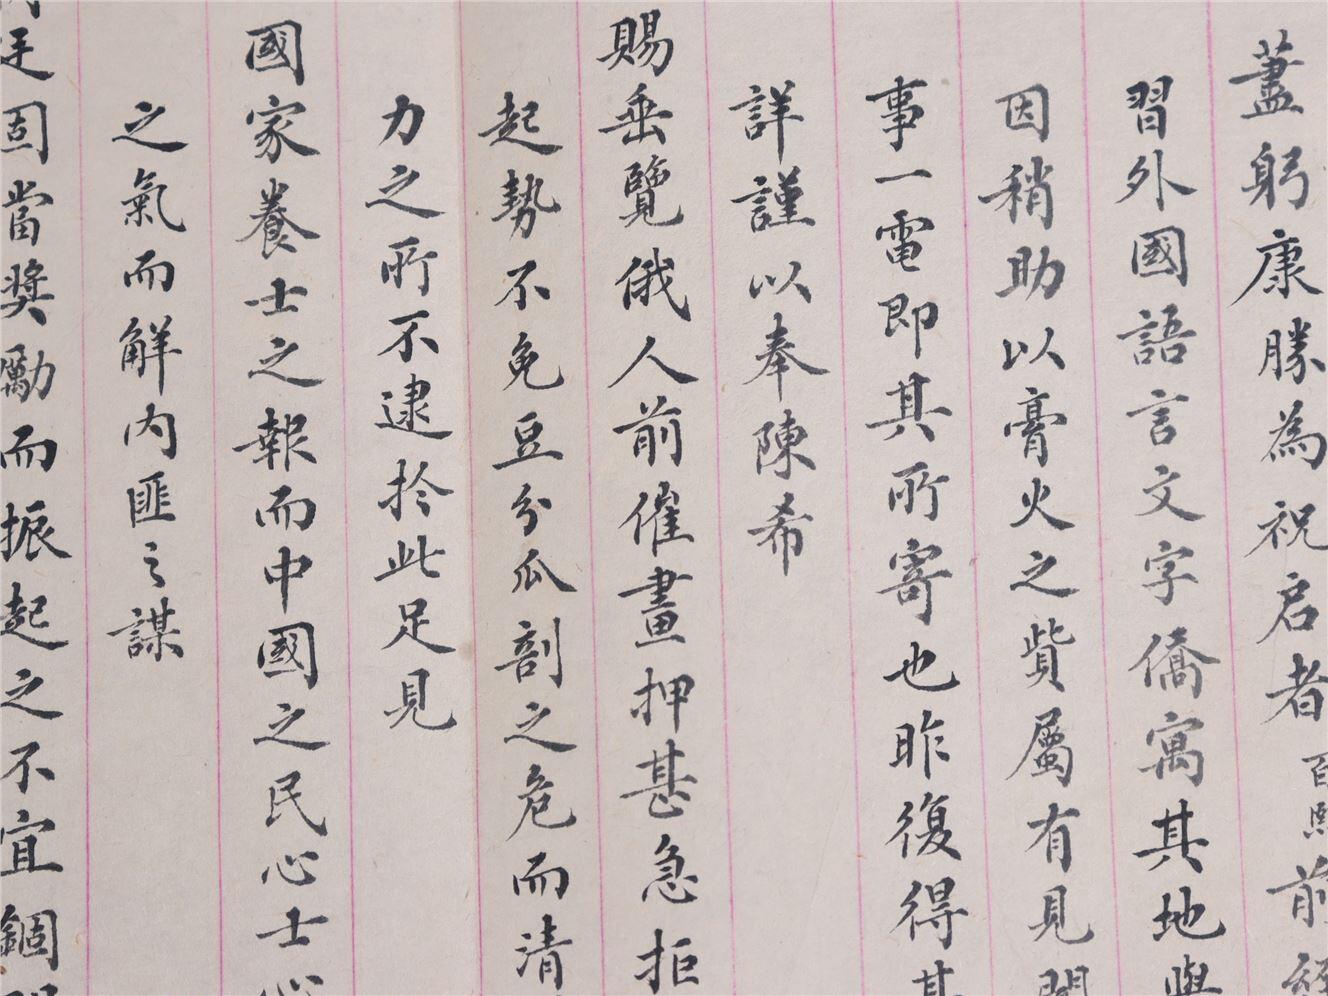 藎躬康勝為祝启者百熙前經
習外國語言文字僑寓其地與
因稍助以膏火之貲屬有見聞
事一電即其所寄也昨復得其
詳謹以奉陳希
賜垂覽俄人前催畫押甚急拒
起勢不免豆分瓜剖之危而清
力之所不逮於此足見
國家養士之報而中國之民心士心
之氣而解內匪之謀
廷固當獎勵而振起之不宜錮